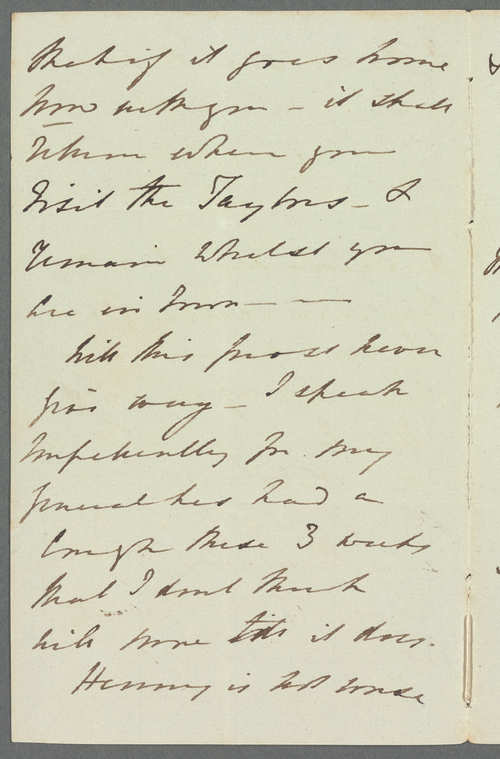 that if it goes home
now with you – it shall
return when you
visit the Taylors – &
remain whilst you
are in Town – –
Will this frost never
give way – I speak
impatiently for my
General has had a
Cough these 3 weeks
that I dont think
will move till it does.
Henry is not worse